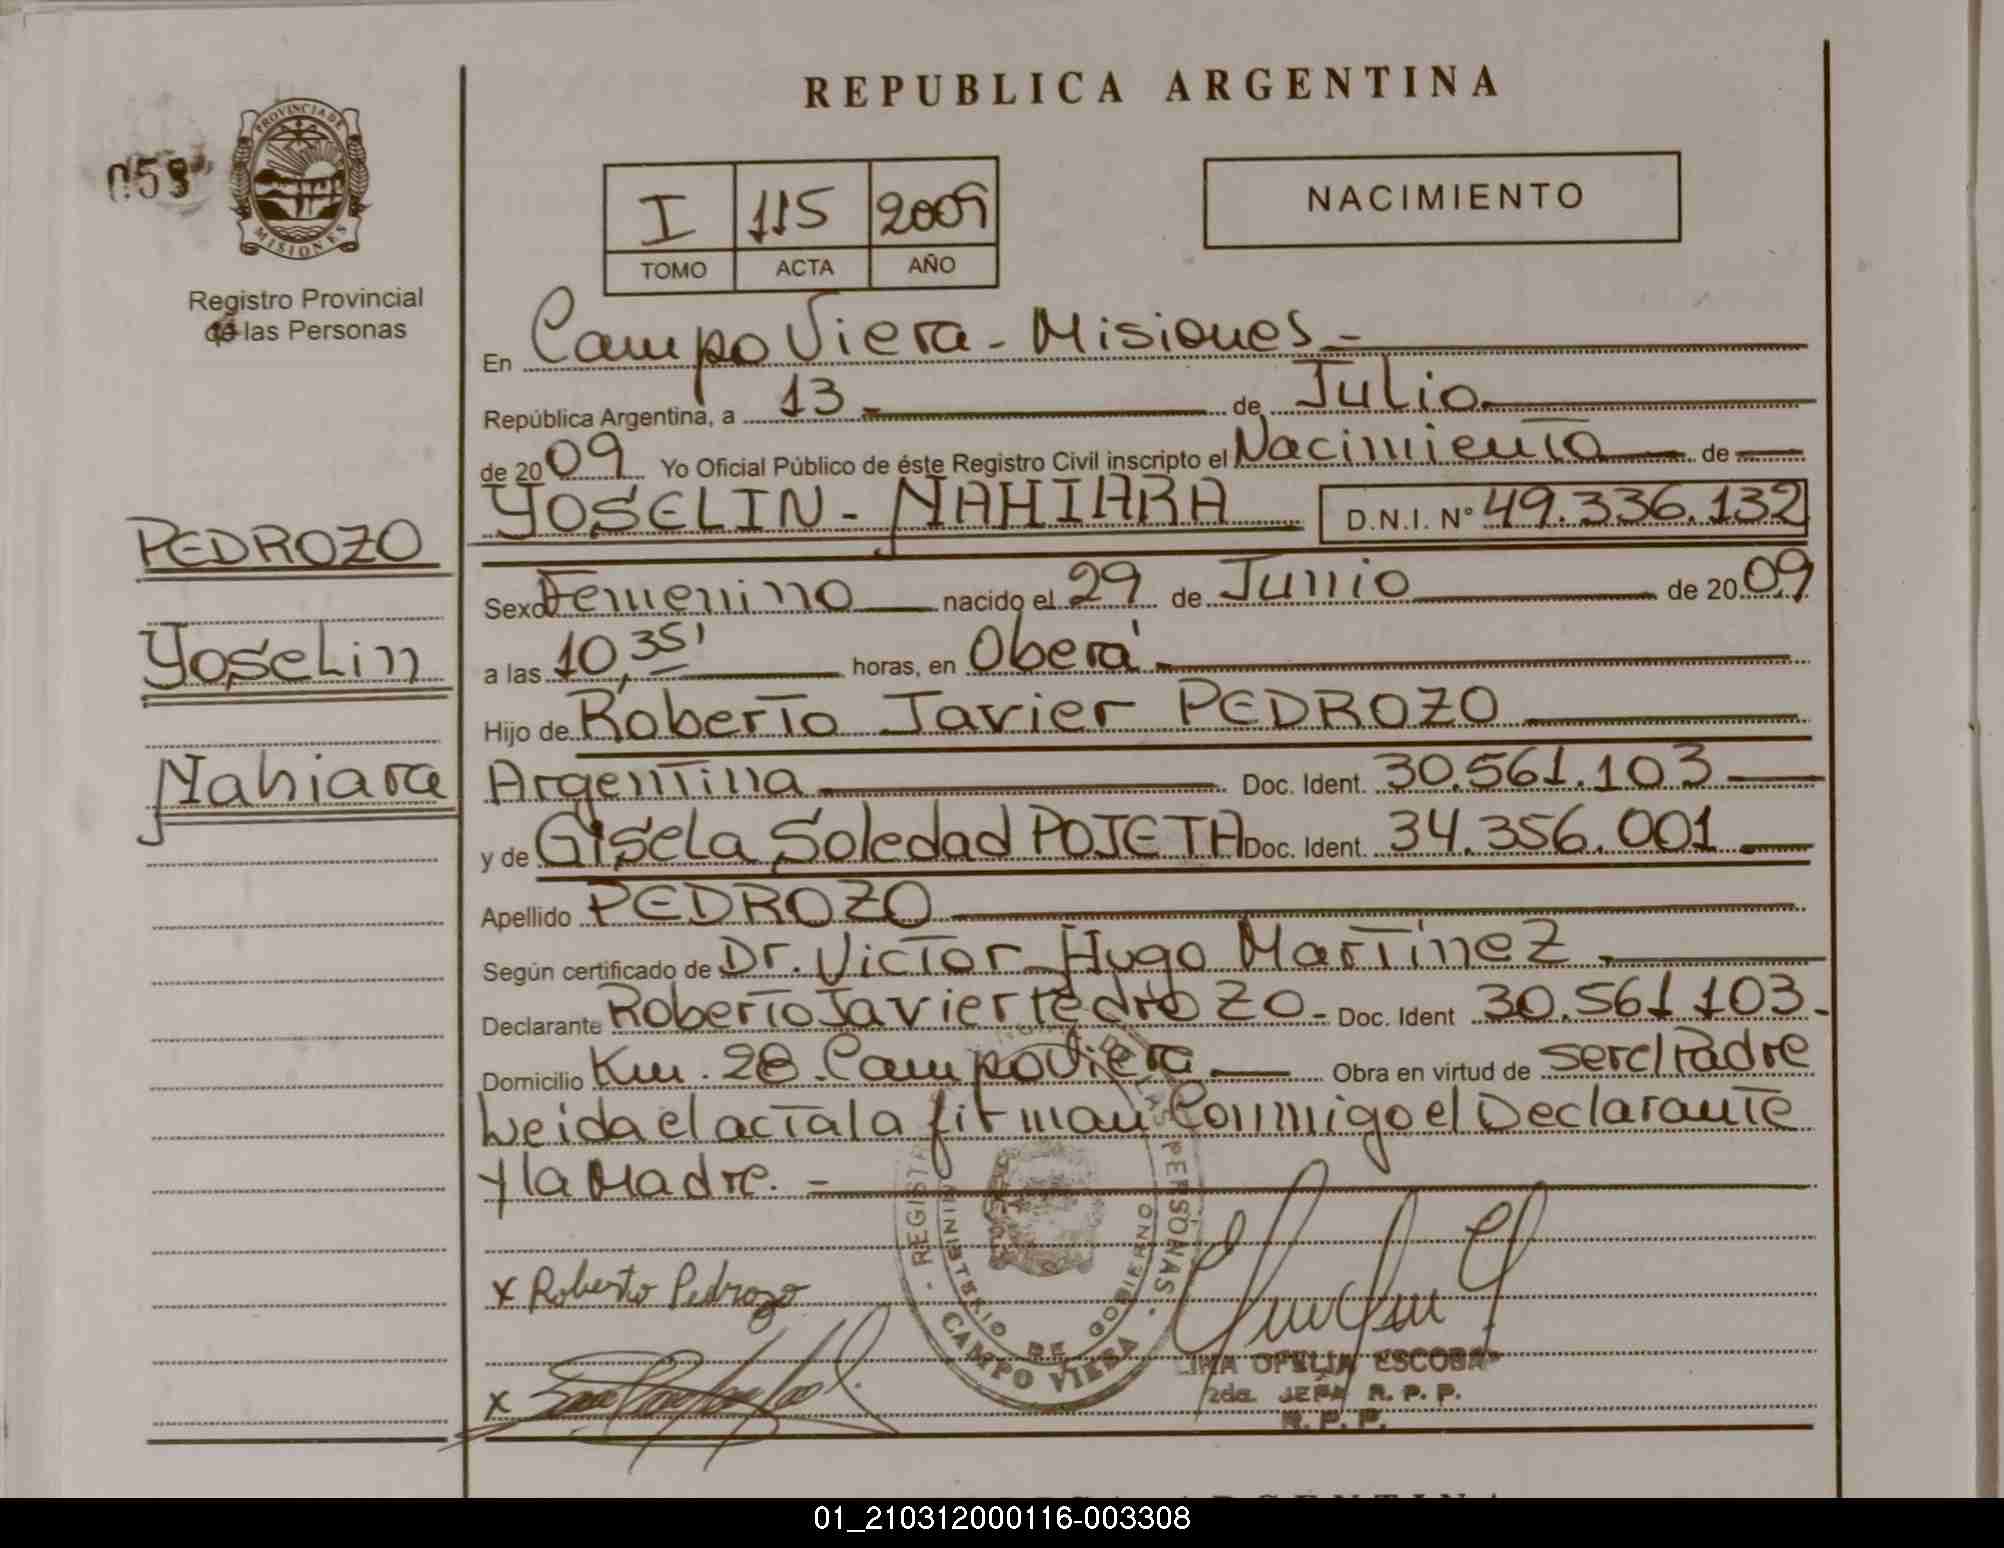 REPUBLICA ARGENTINA
PROVINCIA DE
MISIONES
Registro Provincial
de las Personas
I 115 2009
TOMO ACTA AÑO
NACIMIENTO
En Campo Viera - Misiones -
República Argentina, a 13 - de Julio
de 2009 Yo Oficial Público de éste Registro Civil inscripto el Nacimiento de
YOSELIN - NAHIARA D.N.I. N° 49.336.132
PEDROZO
Yoselin
Nahiara
Sexo Femenino nacido el 29 de Junio de 2009
a las 10,35' horas, en Oberá -
Hijo de Roberto Javier PEDROZO
Argentina Doc. Ident. 30.561.103
y de Gisela Soledad POJETA Doc. Ident. 34.356.001 -
Apellido PEDROZO
Según certificado de Dr. Victor Hugo Martinez -
Declarante Roberto Javier Pedrozo - Doc. Ident 30.561.103 -
Domicilio Km. 28. Campo Viera Obra en virtud de ser el Padre
Leida el acta la firman Conmigo el Declarante
y la Madre. -
x Roberto Pedrozo
x
REGISTR
LAS PERSONAS
MINISTERIO DE GOBIERNO
CAMPO VIERA
OFELIA ESCOBAR
2da. JEFA R. P. P.
R. P. P.
01_210312000116-003308